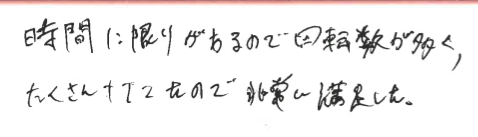 時間に限りがあるので回転数が多く,
たくさん打てたので非常に満足した。